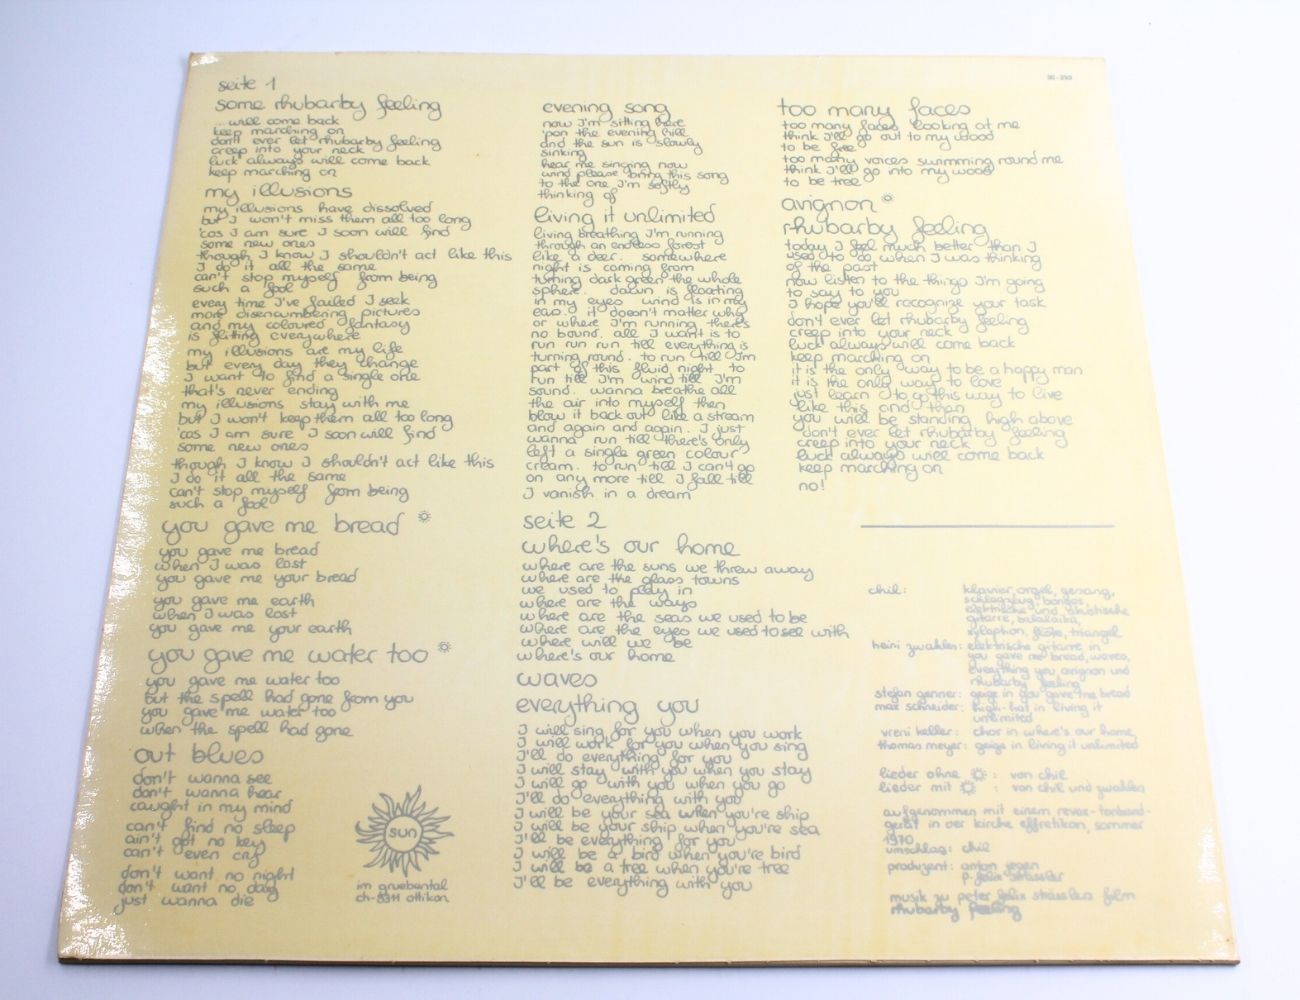 seite 1
some rhubarby feeling
...will come back
keep marching on
don't ever let rhubarby feeling
creep into your neck
luck always will come back
keep marching on
my illusions
my illusions have dissolved
but I won't miss them all too long
'cos I am sure I soon will find
some new ones
though I know I shouldn't act like this
I do it all the same
can't stop myself from being
such a fool
every time I've failed I seek
more disencumbering pictures
and my coloured fantasy
is flitting everywhere
my illusions are my life
but every day they change
I want to find a single one
that's never ending
my illusions stay with me
but I won't keep them all too long
'cos I am sure I soon will find
some new ones
though I know I shouldn't act like this
I do it all the same
can't stop myself from being
such a fool
you gave me bread
you gave me bread
when I was lost
you gave me your bread
you gave me earth
when I was lost
you gave me your earth
you gave me water too
you gave me water too
but the spell had gone from you
you gave me water too
when the spell had gone
out blues
don't wanna see
don't wanna hear
caught in my mind
can't find no sleep
ain't got no key
can't even cry
don't want no night
don't want no day
just wanna die
sun
im gruebental
ch-8311 ottikon
evening song
now I'm sitting here
'pon the evening hill
and the sun is slowly
sinking
hear me singing now
wind please bring this song
to the one I'm softly
thinking of
living it unlimited
living breathing I'm running
through an endless forest
like a deer. somewhere
night is coming from
turning dark green the whole
sphere. dawn is floating
in my eyes wind is in my
ears. it doesn't matter why
or where I'm running there's
no bound. all I want is to
run run run till everything is
turning round. to run till I'm
part of this fluid night to
run till I'm wind till I'm
sound. wanna breathe all
the air into myself then
blow it back out like a stream
and again and again. I just
wanna run till there's only
left a single green colour
cream. to run till I can't go
on any more till I fall till
I vanish in a dream
seite 2
where's our home
where are the suns we threw away
where are the glass towns
we used to play in
where are the ways
where are the seas we used to be
where are the eyes we used to see with
where will we be
where's our home
waves
everything you
I will sing for you when you work
I will work for you when you sing
I'll do everything for you
I will stay with you when you stay
I will go with you when you go
I'll do everything with you
I will be your sea when you're ship
I will be your ship when you're sea
I'll be everything for you
I will be a bird when you're bird
I will be a tree when you're tree
I'll be everything with you
too many faces
too many faces looking at me
think I'll go out to my wood
to be free
too many voices swimming round me
think I'll go into my wood
to be tree
avignon
rhubarby feeling
today I feel much better than I
used to do, when I was thinking
of the past
now listen to the things I'm going
to say to you
I hope you'll recognize your task
don't ever let rhubarby feeling
creep into your neck
luck always will come back
keep marching on
it is the only way to be a happy man
it is the only way to love
just learn to go this way to live
like this and then
you will be standing high above
don't ever let rhubarby feeling
creep into your neck
luck always will come back
keep marching on
no!
chil: klavier, orgel, gesang,
schlagzeug, bongos,
elektrische und akustische
gitarre, balalaika,
xylophon, flöte, triangel
heini zwahlen: elektrische gitarre in
you gave me bread, waves,
everything you avignon und
rhubarby feeling
stefan genner: geige in you gave me bread
max schneider: high-hat in living it
unlimited
vreni keller: chor in where's our home
thomas meyer: geige in living it unlimited
lieder ohne : von chil
lieder mit : von chil und zwahlen
aufgenommen mit einem revox-tonband-
gerät in der kirche effretikon, sommer
1970
umschlag: chil
produzent: anton
p. felix strässler
musik zu peter felix strässlers film
rhubarby feeling